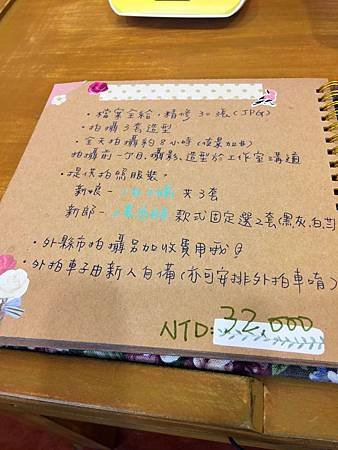 ・檔案全給,精修30張(JPG)
・拍攝3套造型
・全天拍攝約8小時
拍攝前一日,攝影、造型於工作室溝通
・提供拍照服裝。
新娘- 共3套
新郎- 款式固定選2套(黑,灰,白
・外縣市拍攝另加收費用哦
・外拍車子由新人自備(亦可安排外拍車唷)
NTD:32,000